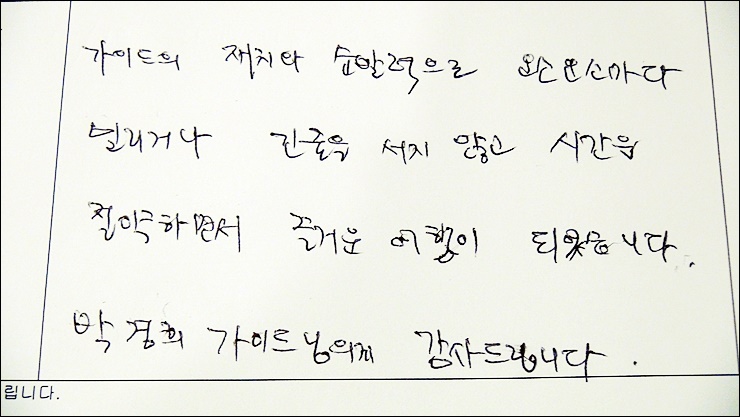 가이드의 재치와 순발력으로 요소요소마다
밀리거나 긴줄을 서지 않고 시간을
절약하면서 즐거운 여행이 되었습니다.
박경희 가이드님의게 감사드립니다.
립니다.